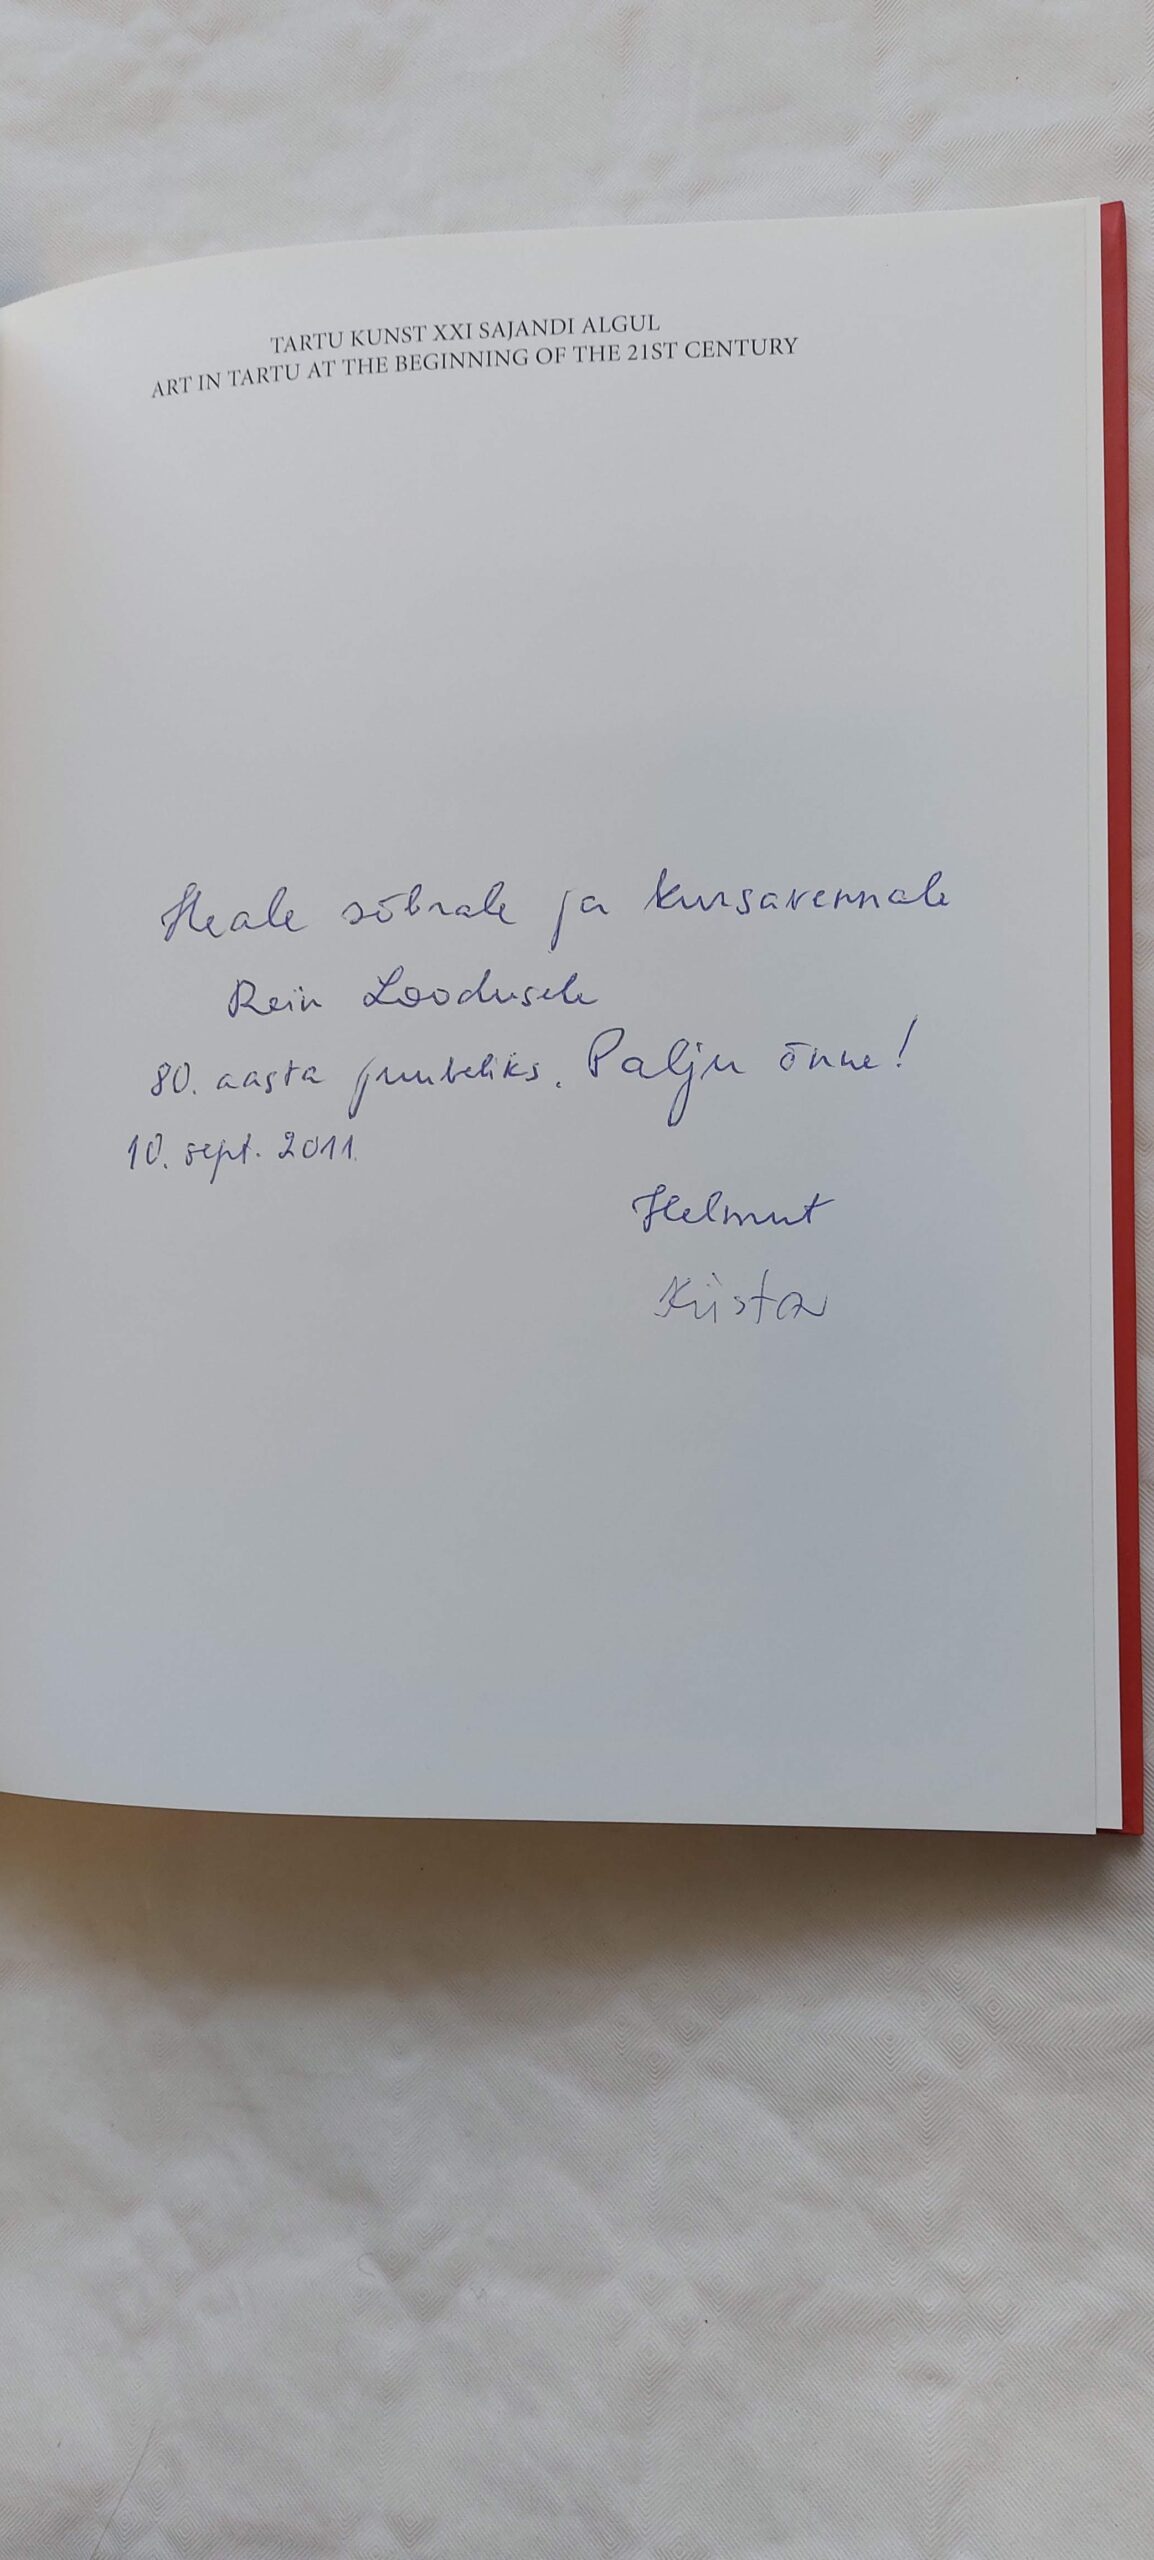 TARTU KUNST XXI SAJANDI ALGUL
ART IN TARTU AT THE BEGINNING OF THE 21ST CENTURY
Heale sõbrale ja kursavennale
Rein Loodusele
80. aasta juubeliks. Palju õnne!
10. sept. 2011.
Helmut